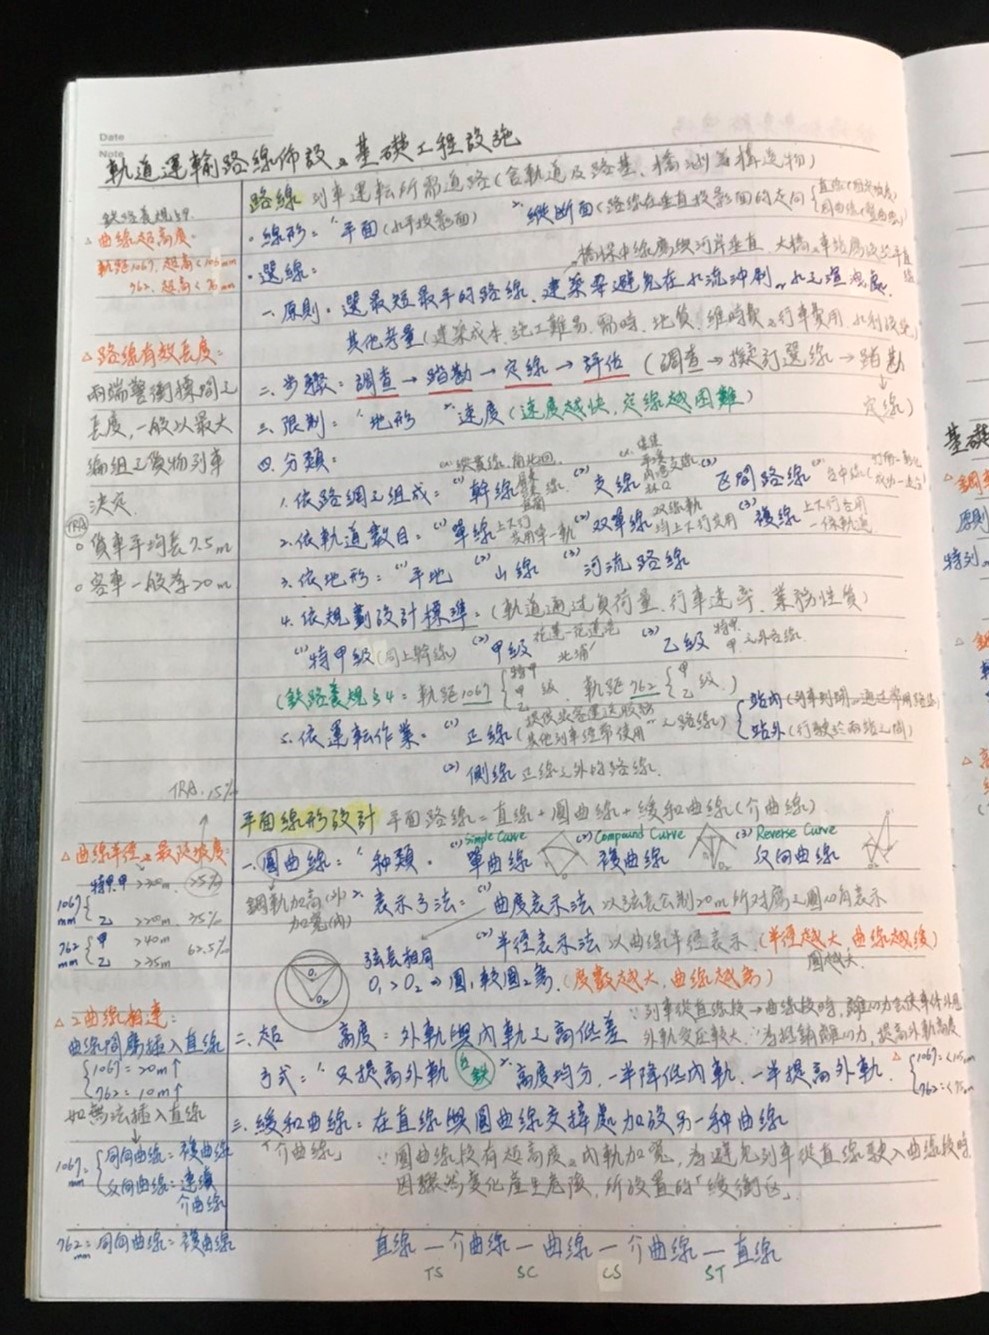 Date
Note
軌道運輸路線佈設及基礎工程設施
鉄路建規§9.
△曲線超高度:
軌距1067, 超高<105mm
762, 超高<75mm
△路線有效長度:
兩端警衝標間之
長度,一般以最大
編組之貨物列車
決定.
(TRA)
○貨車平均長7.5m
○客車一般為20m
路線 列車運転所需道路(含軌道及路基、橋涵等構造物)
・線形: 1.平面(水平投影面) 2.縱断面(路線在垂直投影面的走向
・選線:
橋樑中線應與河岸垂直
一.原則. 選最短最平的路線. 建築要避免在水流冲刷
其他考量(建築成本、施工難易、需時、地質、維時費及行車費用
二.步驟: 調查→踏勘→定線→評估 (調查→擬定訂選線→踏勘
定線)
三.限制: 1.地形 2.速度(速度越快,定線越困難)
四.分類:
1.依路網之組成: (1)幹線 (2)支線 (3)區間路線
2.依軌道數目: (1)單線 (2)双單線 (3)複線
3.依地形: (1)平地 (2)山線 (3)河流路線
4.依規劃設計標準: (軌道通过負荷量、行車速率、業務性質)
(1)特甲級(同上幹線) (2)甲級 (3)乙級
(鉄路建規§4: 軌距1067{特甲 甲 乙 級. 軌距762{甲 乙 級.)
5.依運転作業. (1)正線 {站內 站外(行駛於兩站之間)
(2)側線 正線之外的路線.
TRA. 15‰
平面線形設計 平面路線=直線+圓曲線+緩和曲線(介曲線)
△曲線半径及最大坡度:
1067mm {
乙 >200m. 35‰
762mm {甲 >40m
乙 >25m
62.5‰
一.圓曲線: 1.種類. (1)Simple Curve 單曲線 (2)Compound Curve 複曲線 (3)Reverse Curve 反向曲線
鋼軌加高(外)
加寬(內)
2.表示方法: (1)曲度表示法 以弦長公制20m所対應之圓心角表示
(2)半徑表示法 以曲線半徑表示.(半徑越大 曲線越緩)
圓越大.
弦長相同
O₁>O₂⇒圓₁較圓₂彎.(度數越大,曲線越彎)
△2曲線相連:
曲線間應插入直線
{1067=20m↑
762=10m↑
如無法插入直線
1067.mm {同向曲線=複曲線
反向曲線=連續
介曲線
762=同向曲線=複曲線
mm
二.超高度: 外軌與內軌之高低差
∵列車從直線段→曲線段時,離心力会使車体外甩
方式: 1.只提高外軌(台鉄) 2.高度均分,一半降低內軌.一半提高外軌. △{1067=<105mm
762=<75mm
三.緩和曲線: 在直線與圓曲線交接處加設另一種曲線
「介曲線」 ∵圓曲線段有超高度及內軌加寬,為避免列車從直線駛入曲線段時
因驟然變化產生危險,所設置的「緩衝区」.
直線—介曲線—曲線—介曲線—直線
TS SC CS ST
基礎
原則
特列